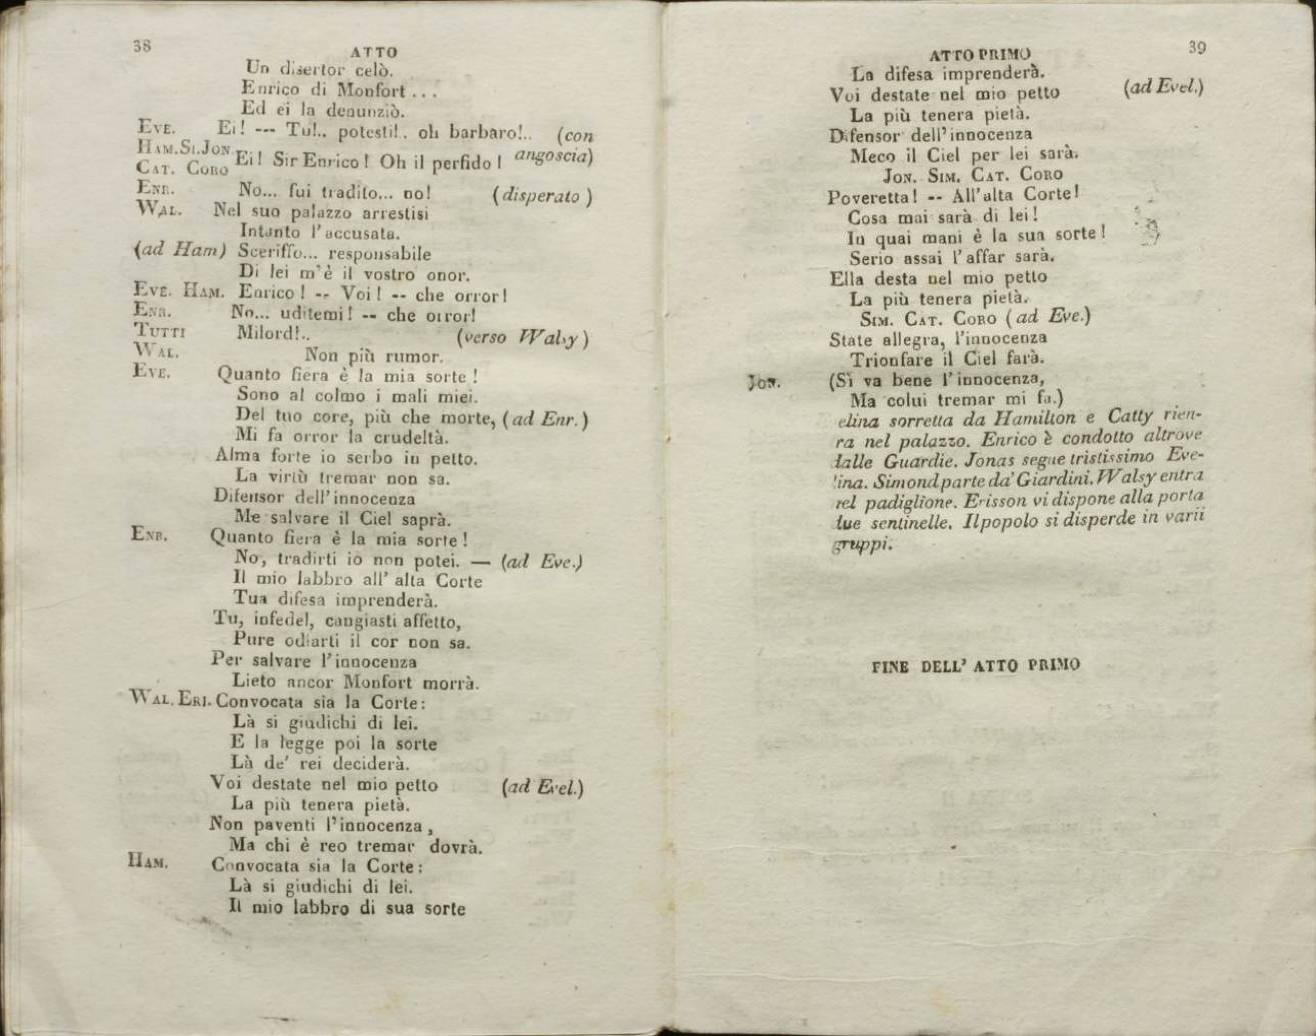 38
ATTO
Un disertor celò.
Enrico di Monfort ...
Ed ei la denunziò.
EVE. Ei! --- Tu!.. potesti!. oh barbaro!.. (con
HAM. SI. JON. CAT. CORO Ei! Sir Enrico! Oh il perfido! angoscia)
ENR. No... fui tradito... no! (disperato)
WAL. Nel suo palazzo arrestisi
Intanto l'accusata.
(ad Ham) Sceriffo... responsabile
Di lei m'è il vostro onor.
EVE. HAM. Enrico! -- Voi! -- che orror!
ENR. No... uditemi! -- che orror!
TUTTI Milord!.. (verso Walsy)
WAL. Non più rumor.
EVE. Quanto fiera è la mia sorte!
Sono al colmo i mali miei.
Del tuo core, più che morte, (ad Enr.)
Mi fa orror la crudeltà.
Alma forte io serbo in petto.
La virtù tremar non sa.
Difensor dell'innocenza
Me salvare il Ciel saprà.
ENR. Quanto fiera è la mia sorte!
No, tradirti io non potei. — (ad Eve.)
Il mio labbro all' alta Corte
Tua difesa imprenderà.
Tu, infedel, cangiasti affetto,
Pure odiarti il cor non sa.
Per salvare l'innocenza
Lieto ancor Monfort morrà.
WAL. ERI. Convocata sia la Corte:
Là si giudichi di lei.
E la legge poi la sorte
Là de' rei deciderà.
Voi destate nel mio petto (ad Evel.)
La più tenera pietà.
Non paventi l'innocenza,
Ma chi è reo tremar dovrà.
HAM. Convocata sia la Corte:
Là si giudichi di lei.
Il mio labbro di sua sorte
ATTO PRIMO 39
La difesa imprenderà.
Voi destate nel mio petto (ad Evel.)
La più tenera pietà.
Difensor dell'innocenza
Meco il Ciel per lei sarà.
JON. SIM. CAT. CORO
Poveretta! -- All'alta Corte!
Cosa mai sarà di lei!
In quai mani è la sua sorte!
Serio assai l'affar sarà.
Ella desta nel mio petto
La più tenera pietà.
SIM. CAT. CORO (ad Eve.)
State allegra, l'innocenza
Trionfare il Ciel farà.
JON. (Sì va bene l'innocenza,
Ma colui tremar mi fa.)
elina sorretta da Hamilton e Catty rien-
ra nel palazzo. Enrico è condotto altrove
dalle Guardie. Jonas segue tristissimo Eve-
lina. Simond parte da' Giardini. Walsy entra
nel padiglione. Erisson vi dispone alla porta
due sentinelle. Il popolo si disperde in varii
gruppi.
FINE DELL' ATTO PRIMO